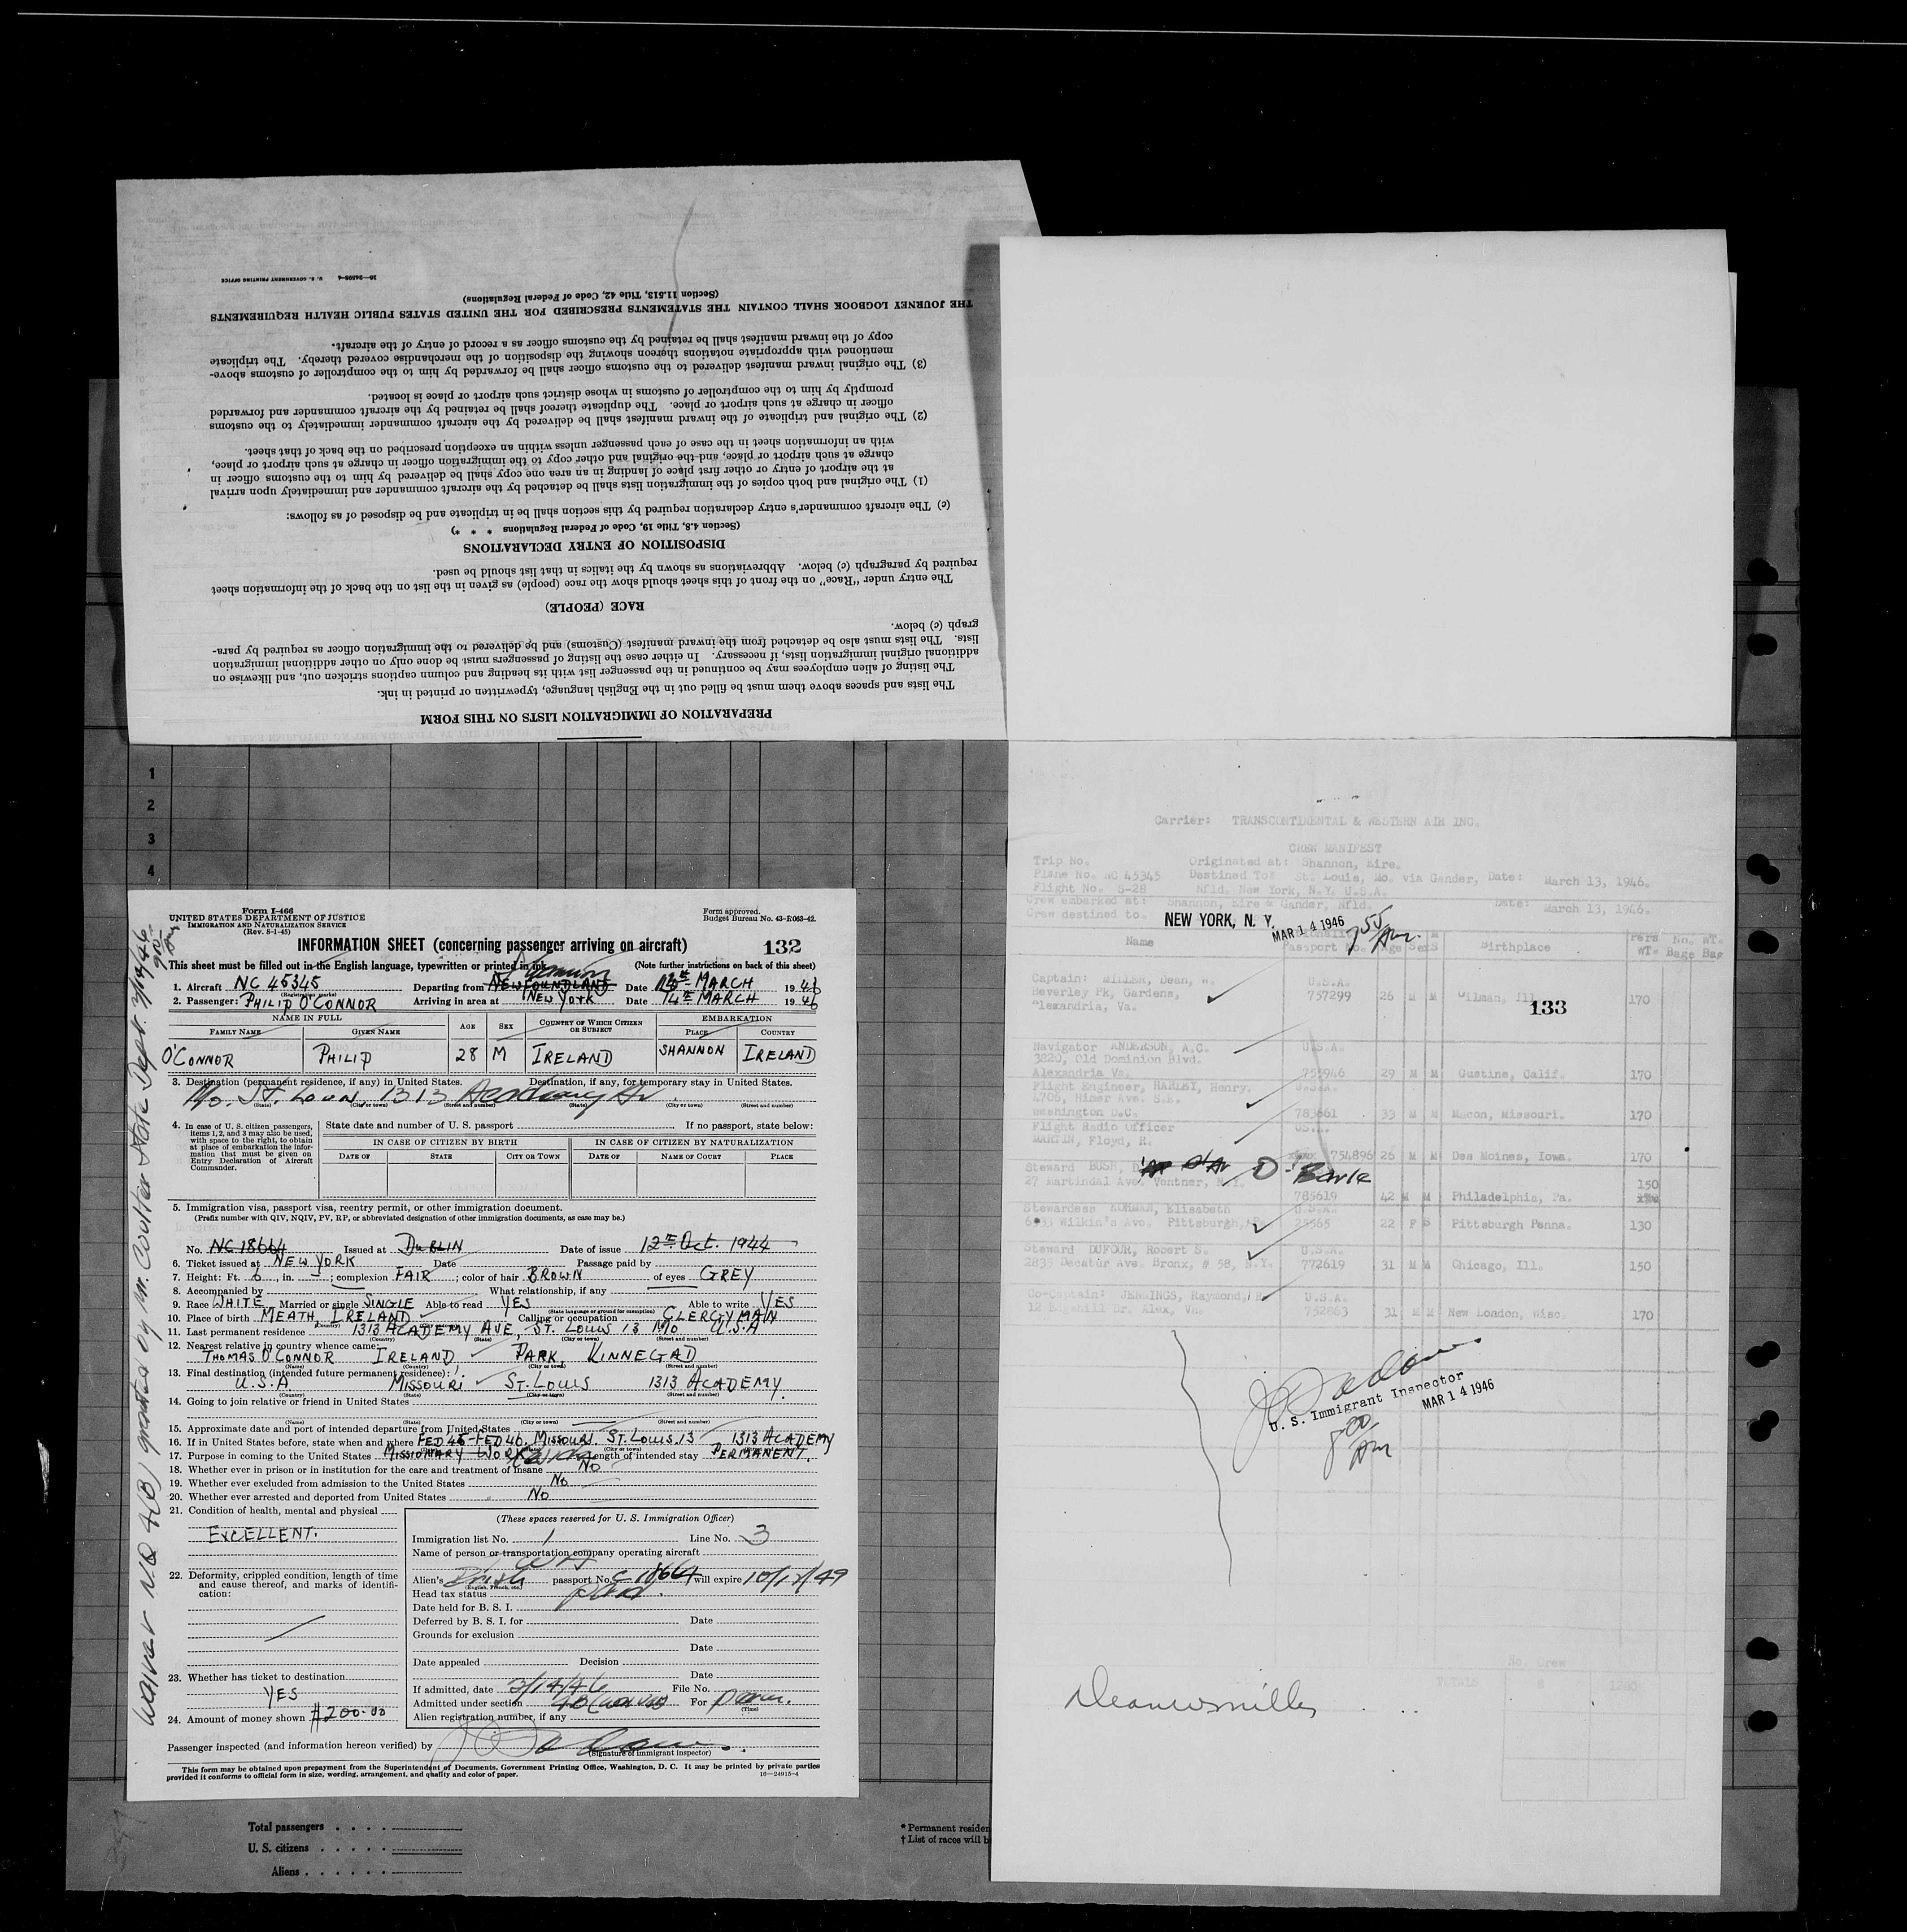 16—24598-4 U. S. GOVERNMENT PRINTING OFFICE
PREPARATION OF IMMIGRATION LISTS ON THIS FORM
The lists and spaces above them must be filled out in the English language, typewritten or printed in ink.
The listing of alien employees may be continued in the passenger list with its heading and column captions stricken out, and likewise on
additional original immigration lists, if necessary. In either case the listing of passengers must be done only on other additional immigration
lists. The lists must also be detached from the inward manifest (Customs) and be delivered to the immigration officer as required by para-
graph (c) below.
RACE (PEOPLE)
The entry under "Race" on the front of this sheet should show the race (people) as given in the list on the back of the information sheet
required by paragraph (c) below. Abbreviations as shown by the italics in that list should be used.
DISPOSITION OF ENTRY DECLARATIONS
(Section 4.8, Title 19, Code of Federal Regulations * * *)
(c) The aircraft commander's entry declaration required by this section shall be in triplicate and be disposed of as follows:
(1) The original and both copies of the immigration lists shall be detached by the aircraft commander and immediately upon arrival
at the airport of entry or other first place of landing in an area one copy shall be delivered by him to the customs officer in
charge at such airport or place, and the original and other copy to the immigration officer in charge at such airport or place,
with an information sheet in the case of each passenger unless within an exception prescribed on the back of that sheet.
(2) The original and triplicate of the inward manifest shall be delivered by the aircraft commander immediately to the customs
officer in charge at such airport or place. The duplicate thereof shall be retained by the aircraft commander and forwarded
promptly by him to the comptroller of customs in whose district such airport or place is located.
(3) The original inward manifest delivered to the customs officer shall be forwarded by him to the comptroller of customs above-
mentioned with appropriate notations thereon showing the disposition of the merchandise covered thereby. The triplicate
copy of the inward manifest shall be retained by the customs officer as a record of entry of the aircraft.
THE JOURNEY LOGBOOK SHALL CONTAIN THE STATEMENTS PRESCRIBED FOR THE UNITED STATES PUBLIC HEALTH REQUIREMENTS
(Section 11.513, Title 42, Code of Federal Regulations)
1
2
3
4
Waiver N.Q 4(B) granted by Mr. Coulter State Dept. 3/14/46
Form I-466
UNITED STATES DEPARTMENT OF JUSTICE
IMMIGRATION AND NATURALIZATION SERVICE
(Rev. 8-1-45)
Form approved.
Budget Bureau No. 43-R063-42.
INFORMATION SHEET (concerning passenger arriving on aircraft) 132
This sheet must be filled out in the English language, typewritten or printed in ink. (Note further instructions on back of this sheet)
Shannon
1. Aircraft NC 45345 Departing from NEWFOUNDLAND Date MARCH 1946
(Registration marks)
2. Passenger: PHILIP O'CONNOR Arriving in area at NEW YORK Date 14TH MARCH 1946
NAME IN FULL AGE SEX COUNTRY OF WHICH CITIZEN OR SUBJECT EMBARKATION
FAMILY NAME GIVEN NAME PLACE COUNTRY
O'CONNOR PHILIP 28 M IRELAND SHANNON IRELAND
3. Destination (permanent residence, if any) in United States. Destination, if any, for temporary stay in United States.
Mo. St. Louis, 1313 Academy Av
(State) (City or town) (Street and number) (State) (City or town) (Street and number)
4. In case of U. S. citizen passengers, items 1, 2, and 3 may also be used, with space to the right, to obtain at place of embarkation the information that must be given on Entry Declaration of Aircraft Commander.
State date and number of U. S. passport If no passport, state below:
IN CASE OF CITIZEN BY BIRTH IN CASE OF CITIZEN BY NATURALIZATION
DATE OF STATE CITY OR TOWN DATE OF NAME OF COURT PLACE
5. Immigration visa, passport visa, reentry permit, or other immigration document.
(Prefix number with QIV, NQIV, PV, RP, or abbreviated designation of other immigration documents, as case may be.)
No. NC 18664 Issued at DUBLIN Date of issue 12TH Oct. 1944
6. Ticket issued at NEW YORK Date Passage paid by
7. Height: Ft. 6, in. —; complexion FAIR; color of hair BROWN of eyes GREY
8. Accompanied by What relationship, if any
9. Race WHITE Married or single SINGLE Able to read YES Able to write YES
(State language or ground for exemption)
10. Place of birth MEATH, IRELAND Calling or occupation CLERGYMAN
11. Last permanent residence 1313 ACADEMY AVE, ST. LOUIS 13 MO U.S.A
(Country) (State) (City or town) (Street and number)
12. Nearest relative in country whence came:
THOMAS O'CONNOR IRELAND PARK, KINNEGAD
(Name) (Country) (City or town) (Street and number)
13. Final destination (intended future permanent residence):
U.S.A. MISSOURI ST. LOUIS 1313 ACADEMY.
(Country) (State) (City or town) (Street and number)
14. Going to join relative or friend in United States
(Name) (State) (City or town) (Street and number)
15. Approximate date and port of intended departure from United States
16. If in United States before, state when and where FEB 45-FEB 46. MISSOURI. ST. LOUIS. 13 1313 ACADEMY
17. Purpose in coming to the United States MISSIONARY WORK Length of intended stay PERMANENT.
18. Whether ever in prison or in institution for the care and treatment of insane NO
19. Whether ever excluded from admission to the United States NO
20. Whether ever arrested and deported from United States NO
21. Condition of health, mental and physical
EXCELLENT.
22. Deformity, crippled condition, length of time and cause thereof, and marks of identification:
23. Whether has ticket to destination
YES
24. Amount of money shown $200.00
(These spaces reserved for U. S. Immigration Officer)
Immigration list No. 1 Line No. 3
Name of person or transportation company operating aircraft
Alien's Irish passport No. C 18664 will expire 10/12/49
(English, French, etc.)
Head tax status paid.
Date held for B. S. I.
Deferred by B. S. I. for Date
Grounds for exclusion
Date
Date appealed Decision
Date
If admitted, date 3/14/46 File No.
Admitted under section 4B (waived) For perm.
(Time)
Alien registration number, if any
Passenger inspected (and information hereon verified) by
(Signature of immigrant inspector)
This form may be obtained upon prepayment from the Superintendent of Documents, Government Printing Office, Washington, D. C. It may be printed by private parties
provided it conforms to official form in size, wording, arrangement, and quality and color of paper. 16—24915-4
Total passengers
U. S. citizens
Aliens
* Permanent residen
† List of races will b
Carrier: TRANSCONTINENTAL & WESTERN AIR INC.
CREW MANIFEST
Trip No. Originated at: Shannon, Eire.
Plane No. NC 45345 Destined To: St. Louis, Mo. via Gander, Date: March 13, 1946.
Flight No. S-28 Nfld. New York, N.Y. U.S.A.
Crew embarked at: Shannon, Eire & Gander, Nfld. Date: March 13, 1946.
Crew destined to. NEW YORK, N. Y. MAR 14 1946 755 Am.
Name Passport No. Age Sex MS Birthplace Pers WT. No. Bags WT. Bag
Captain: MILLER, Dean, W. U.S.A.
Beverley Pk, Gardens, 757299 26 M M Gilman, Ill. 170
Alexandria, Va.
133
Navigator ANDERSON, A.C. U.S.A.
3820, Old Dominion Blvd.
Alexandria Va. 755946 29 M M Gustine, Calif. 170
Flight Engineer, HARLEY, Henry. U.S.A.
4706, Himer Ave. S.E.
Washington D.C. 783661 33 M M Macon, Missouri. 170
Flight Radio Officer US.A.
MARTIN, Floyd, R.
754896 26 M M Des Moines, Iowa. 170
Steward BUSH,
27 Martindal Ave. Ventner, N.Y. 150
785619 42 M M Philadelphia, Pa.
Stewardess KORMAN, Elisabeth U.S.A.
Wilkin's Ave. Pittsburgh, 25565 22 F S Pittsburgh Penna. 130
Steward DUFOUR, Robert S. U.S.A.
2835 Decatur Ave. Bronx, # 58, N.Y. 772619 31 M M Chicago, Ill. 150
Co-Captain: JENNINGS, Raymond, R U.S.A.
12 Edgehill Dr. Alex, Va. 752863 31 M M New London, Wisc. 170
U. S. Immigrant Inspector
MAR 14 1946
800 Am
No. Crew
TOTALS 8 1280
Deanwmiller